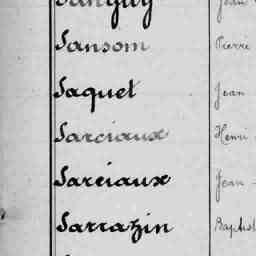 Sansom Pierre
Saquet Jean
Sarciaux Henri
Sarciaux Jean
Sarrazin